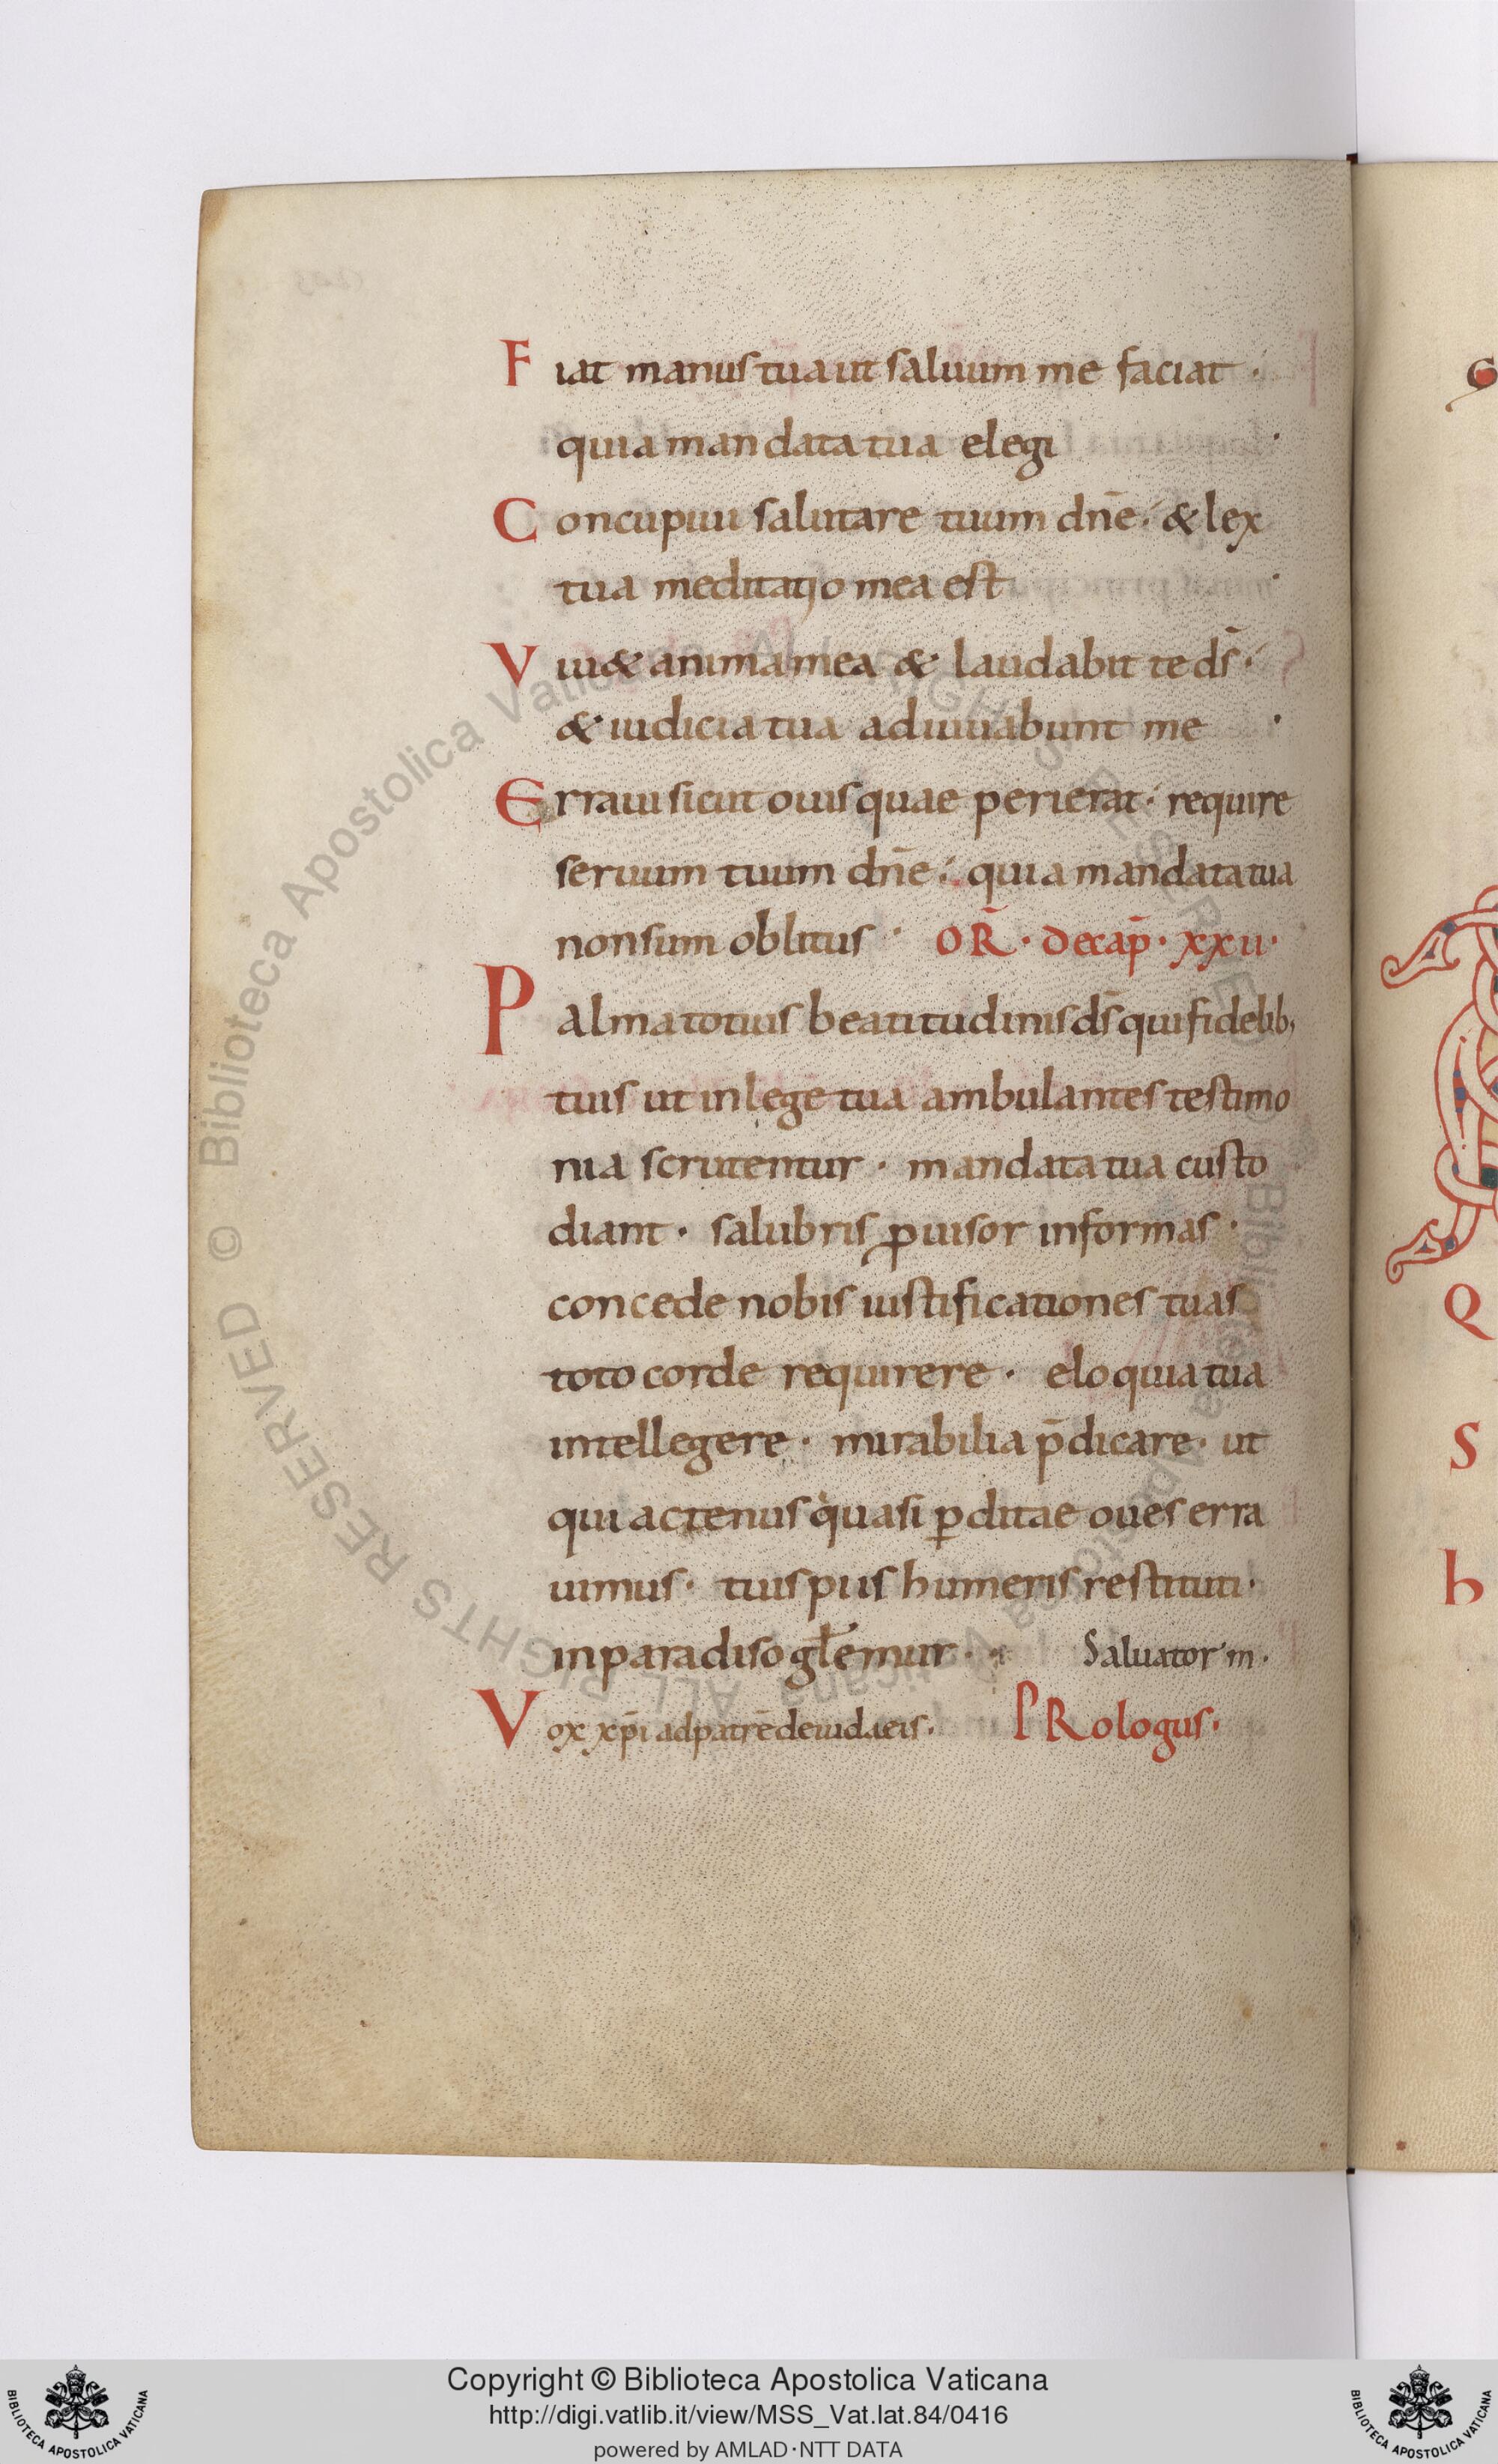 Fiat manus tua ut saluum me faciat ·
quia mandata tua elegi ·
Concupiui salutare tuum dn̄e · & lex
tua meditatio mea est ·
Viu& anima mea & laudabit te ds̄ ·
& iudicia tua adiuuabunt me ·
Erraui sicut ouis quae perierat · require
seruum tuum dn̄e · quia mandata tua
non sum oblitus · OR̄ · de cap̄ · xxii ·
Palma totius beatitudinis ds̄ qui fidelib;
tuis ut in lege tua ambulantes testimo
nia scrutentur · mandata tua custo
diant · salubris ꝓuisor informas ·
concede nobis iustificationes tuas
toto corde requirere · eloquia tua
intellegere · mirabilia p̄dicare · ut
qui actenus quasi ꝑditae oues erra
uimus · tuis piis humeris restituti ·
in paradiso gl̄emur · Saluator m ·
Vox xp̄i ad patrē de iudaeis · PRologus ·
Q
S
h
© Biblioteca Apostolica Vaticana ALL RIGHTS RESERVED
BIBLIOTECA APOSTOLICA VATICANA
Copyright © Biblioteca Apostolica Vaticana
http://digi.vatlib.it/view/MSS_Vat.lat.84/0416
powered by AMLAD·NTT DATA
BIBLIOTECA APOSTOLICA VATICANA